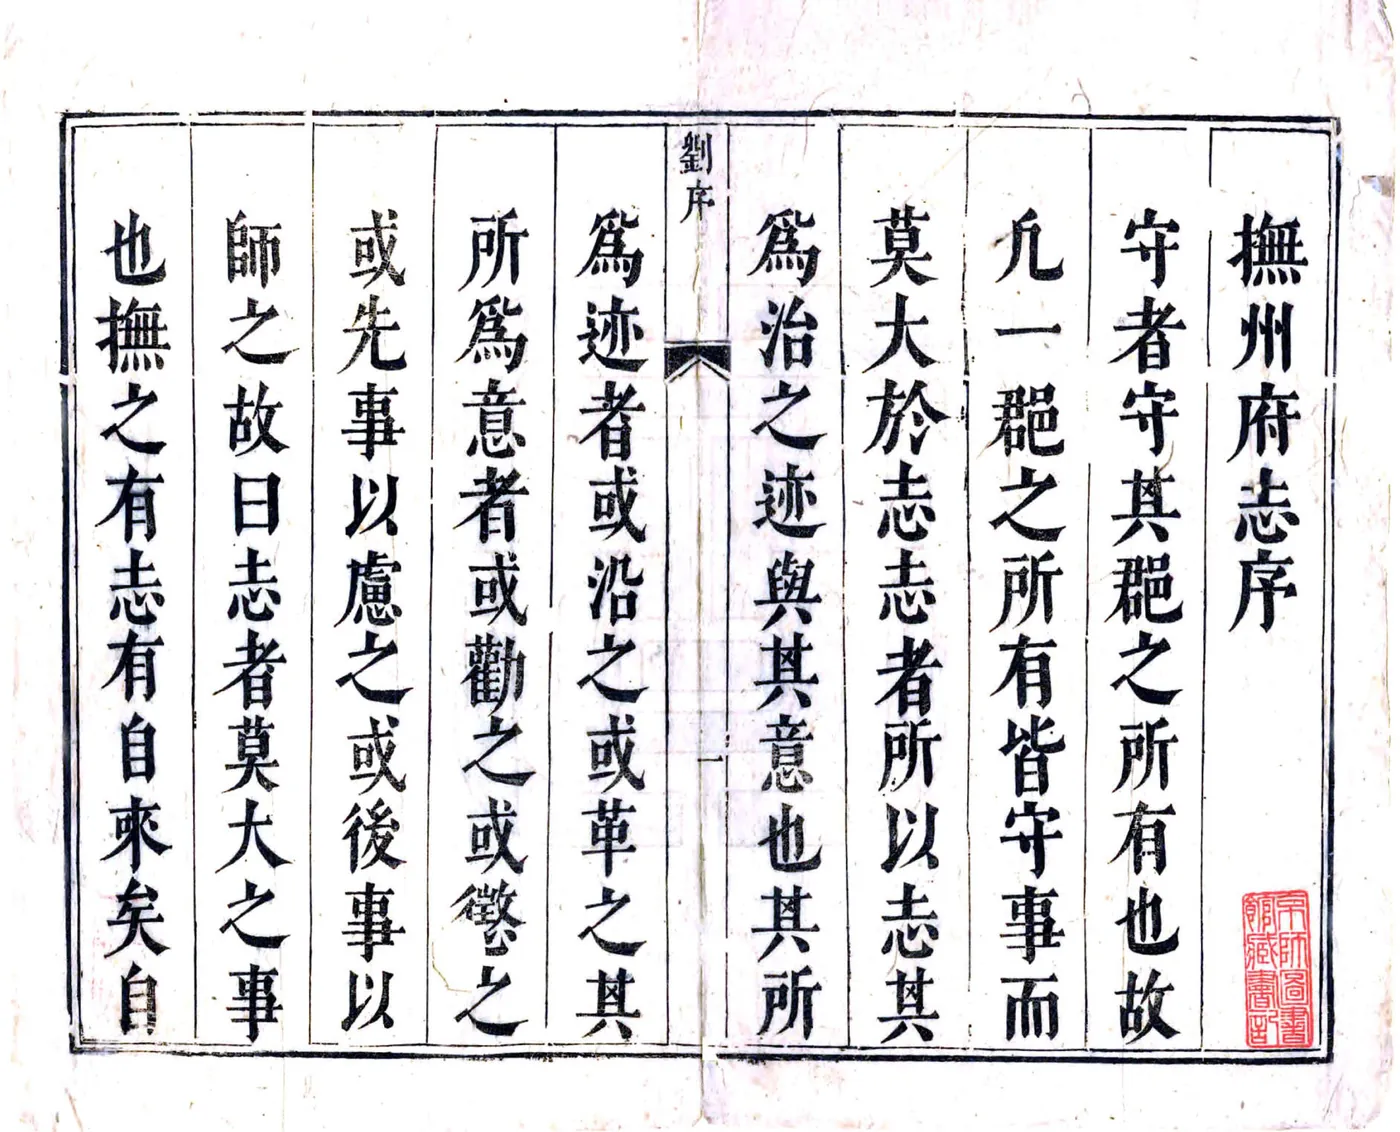 撫州府志序
守者守其郡之所有也故
凢一郡之所有皆守事而
莫大於志志者所以志其
爲治之迹與其意也其所
劉序
一
爲迹者或沿之或革之其
所爲意者或勸之或懲之
或先事以慮之或後事以
師之故曰志者莫大之事
也撫之有志有自來矣自
京師圖書
館藏書記